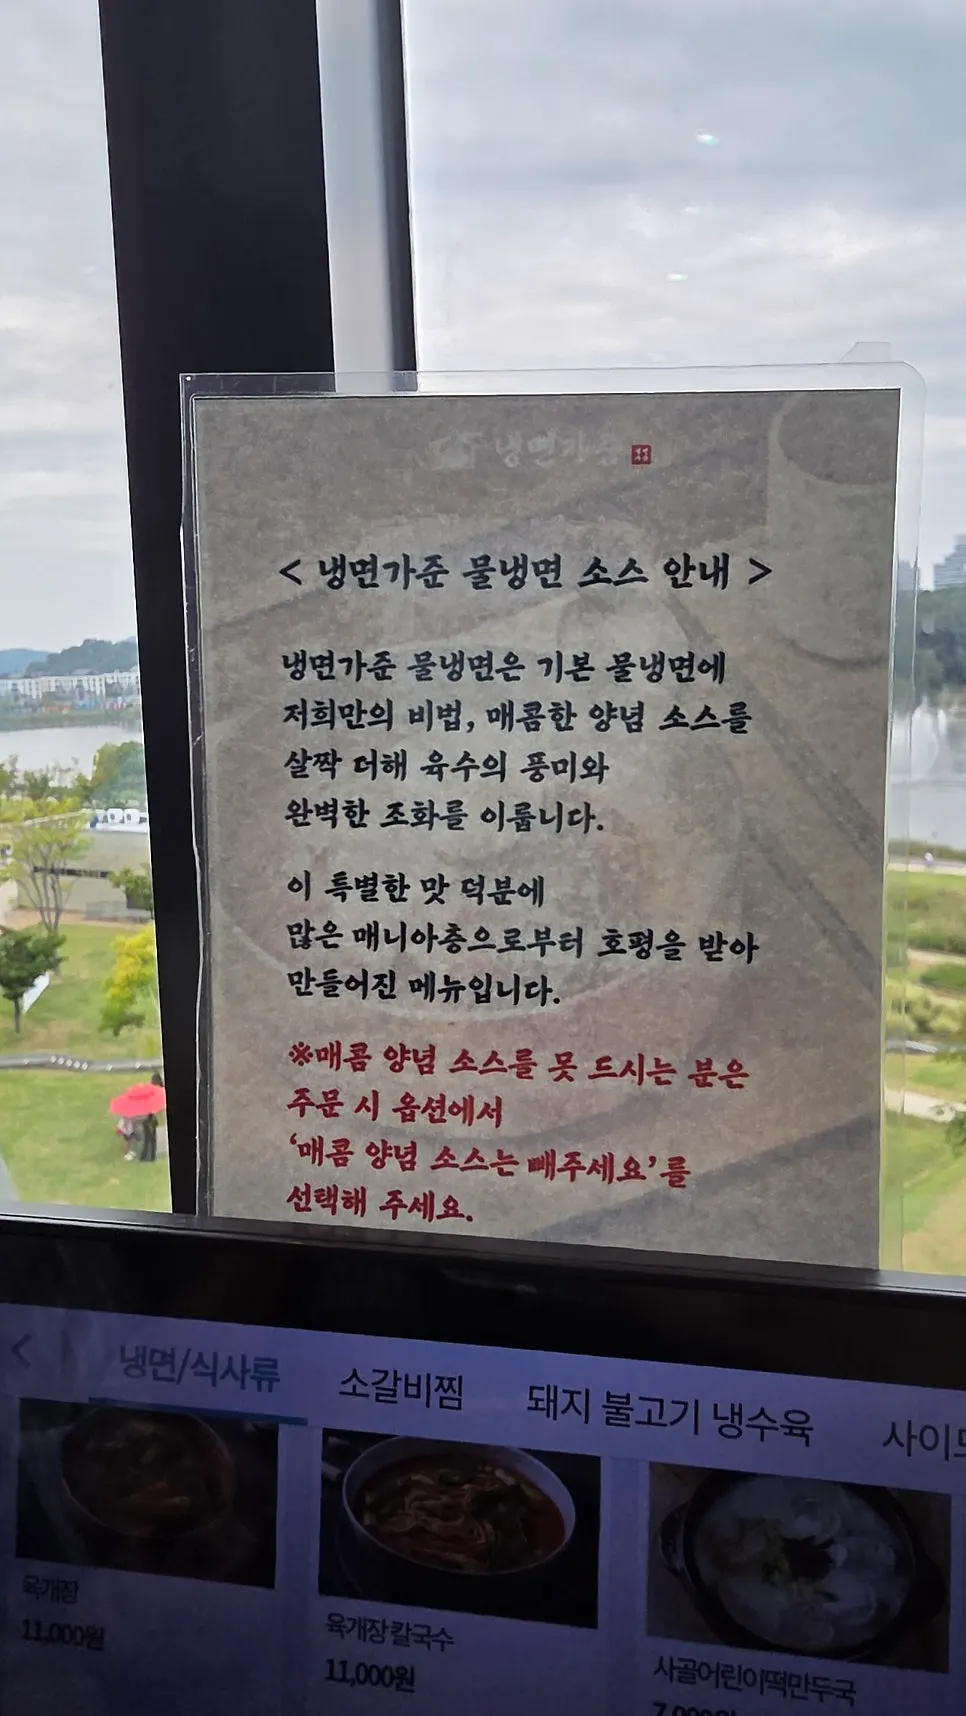 냉면가준
< 냉면가준 물냉면 소스 안내 >
냉면가준 물냉면은 기본 물냉면에
저희만의 비법, 매콤한 양념 소스를
살짝 더해 육수의 풍미와
완벽한 조화를 이룹니다.
이 특별한 맛 덕분에
많은 매니아층으로부터 호평을 받아
만들어진 메뉴입니다.
※매콤 양념 소스를 못 드시는 분은
주문 시 옵션에서
‘매콤 양념 소스는 빼주세요’를
선택해 주세요.
냉면/식사류 소갈비찜 돼지 불고기 냉수육 사이드
육개장 육개장칼국수 사골어린이떡만두국
11,000원 11,000원